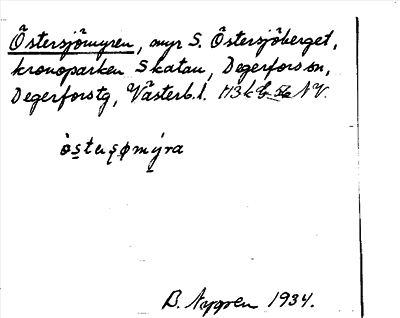 Östersjömyren, myr S. Östersjöberget,
kronoparken Skatan, Degerfors sn,
Degerforstg, Västerb.l. 113 k NV.
òsteʂømýra
B. Nygren 1934.